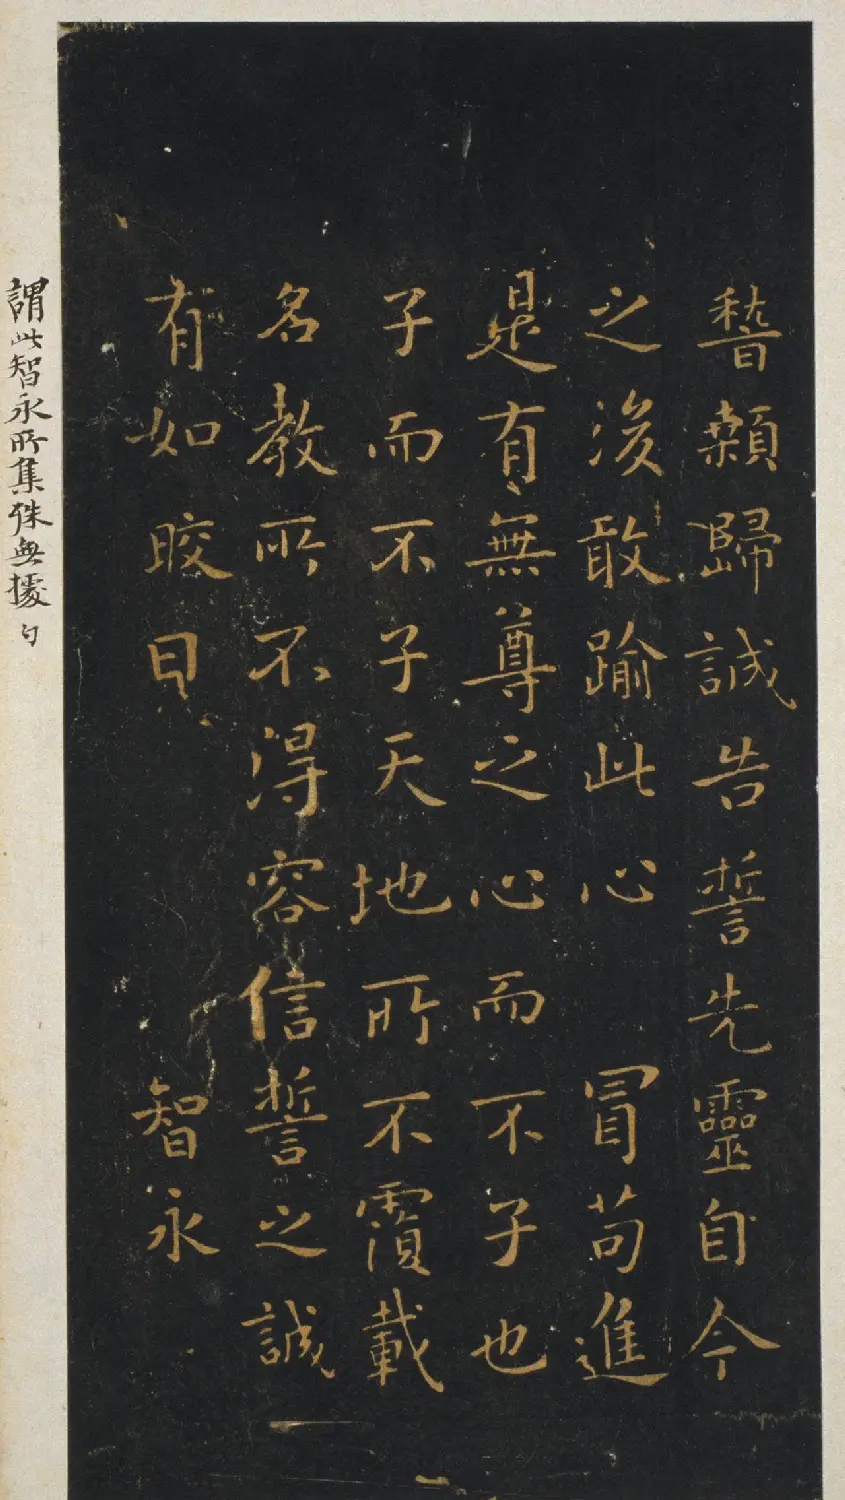 稽顙歸誠告誓先靈自今
之後敢踰此心 冒苟進
是有無尊之心而不子也
子而不子天地所不覆載
名教所不得容信誓之誠
有如皎日 智永
謂此智永所集殊無據